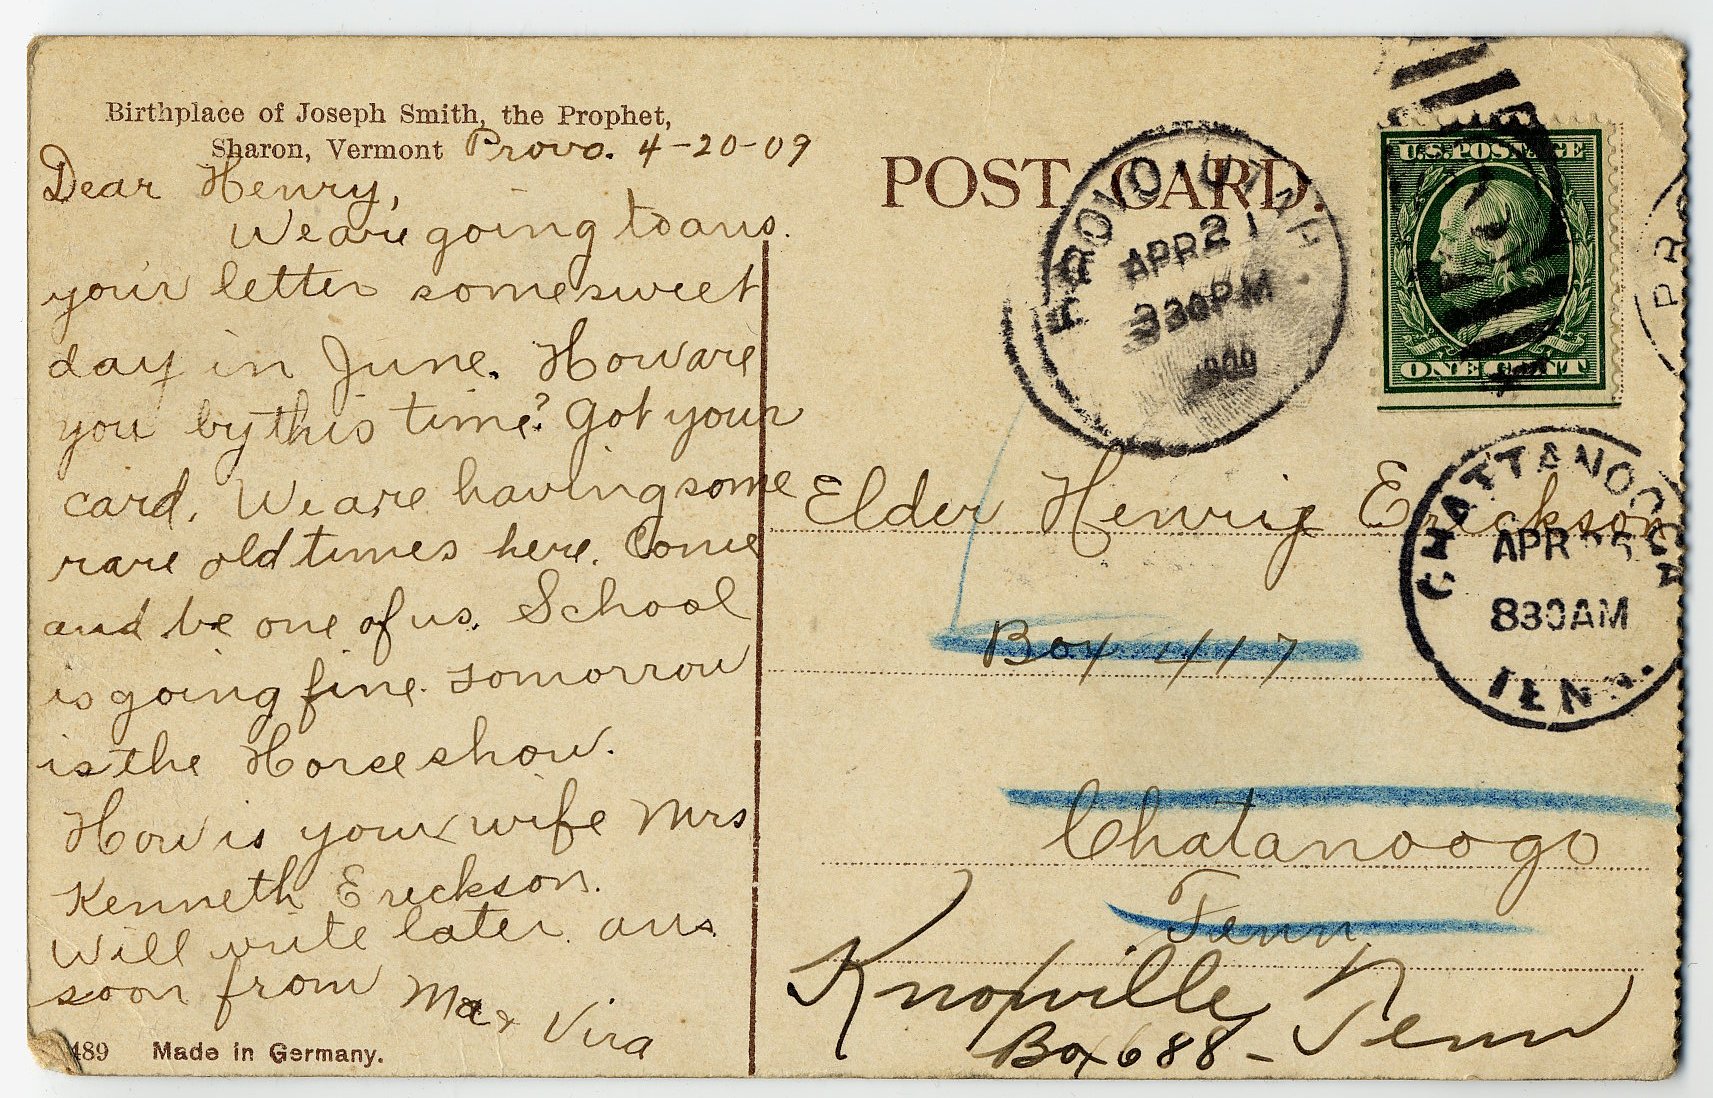 Birthplace of Joseph Smith, the Prophet,
Sharon, Vermont Provo. 4-20-09
Dear Henry,
We are going to ans.
your letter some sweet
day in June. How are
you by this time? Got your
card. We are having some
rare old times here. Come
and be one of us. School
is going fine. Tomorrow
is the Horse show.
How is your wife Mrs
Kenneth Erickson.
Will write later. ans.
soon from Ma & Vira
489 Made in Germany.
POST CARD.
PROVO UTAH.
APR 21
330PM
U.S. POSTAGE
ONE CENT
PR
Elder Henrie Erickson
CHATTANOOGA
APR
830AM
TENN.
Box 417
Chatanoogo
Tenn
Knoxville Tenn
Box 688 -